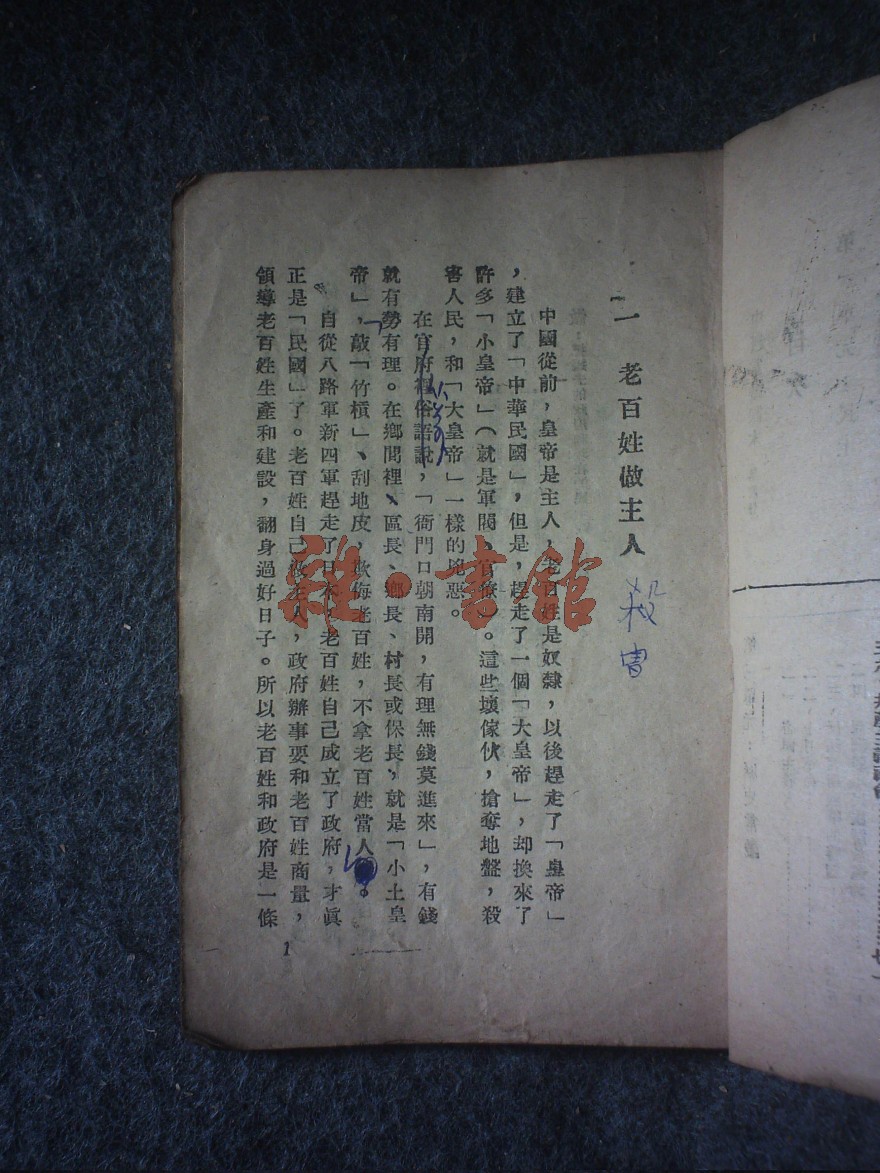 一 老百姓做主人
中國從前，皇帝是主人，老百姓是奴隸，以後趕走了「皇帝」
，建立了「中華民國」，但是，趕走了一個「大皇帝」，却換來了
許多「小皇帝」（就是軍閥、官僚）。這些壞傢伙，搶奪地盤，殺
害人民，和「大皇帝」一樣的兇惡。
在官府裡俗語說，「衙門口朝南開，有理無錢莫進來」，有錢
就有勢有理。在鄉間裡、區長、鄉長、村長或保長，就是「小土皇
帝」，敲「竹槓」、刮地皮，欺侮老百姓，不拿老百姓當人。
自從八路軍新四軍趕走了日本，老百姓自己成立了政府，才眞
正是「民國」了。老百姓自己做主人，政府辦事要和老百姓商量，
領導老百姓生產和建設，翻身過好日子。所以老百姓和政府是一條
1
殺害
雜·書館